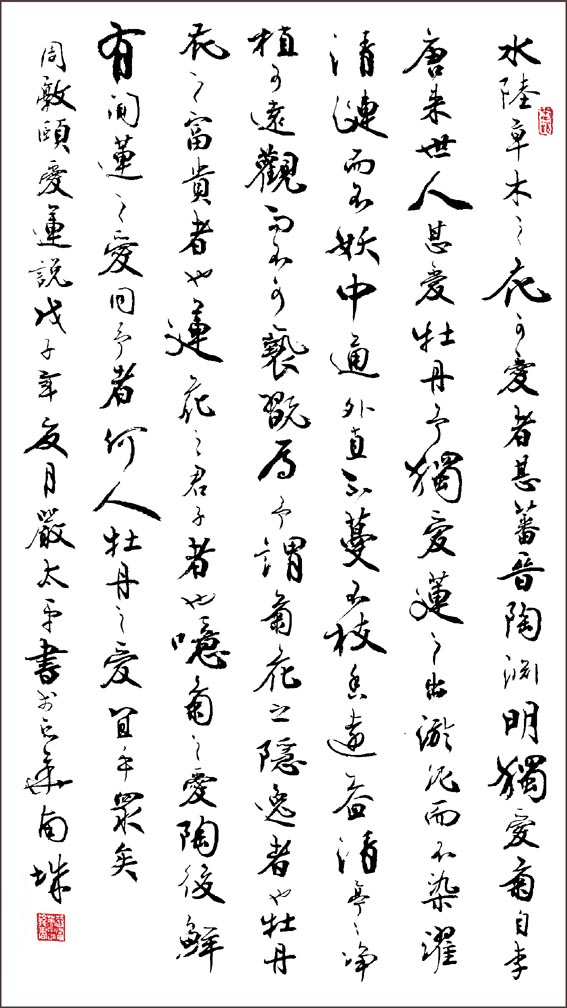 水陸草木之花可愛者甚蕃晉陶淵明獨愛菊自李
唐来世人甚愛牡丹予獨愛蓮之出淤泥而不染濯
清漣而不妖中通外直不蔓不枝香遠益清亭〻淨
植可遠觀而不可褻翫焉予謂菊花之隱逸者也牡丹
花之富貴者也蓮花之君子者也噫菊之愛陶後鮮
有聞蓮之愛同予者何人牡丹之愛宜乎眾矣
周敦頤愛蓮說戊子年夏月嚴太平書於